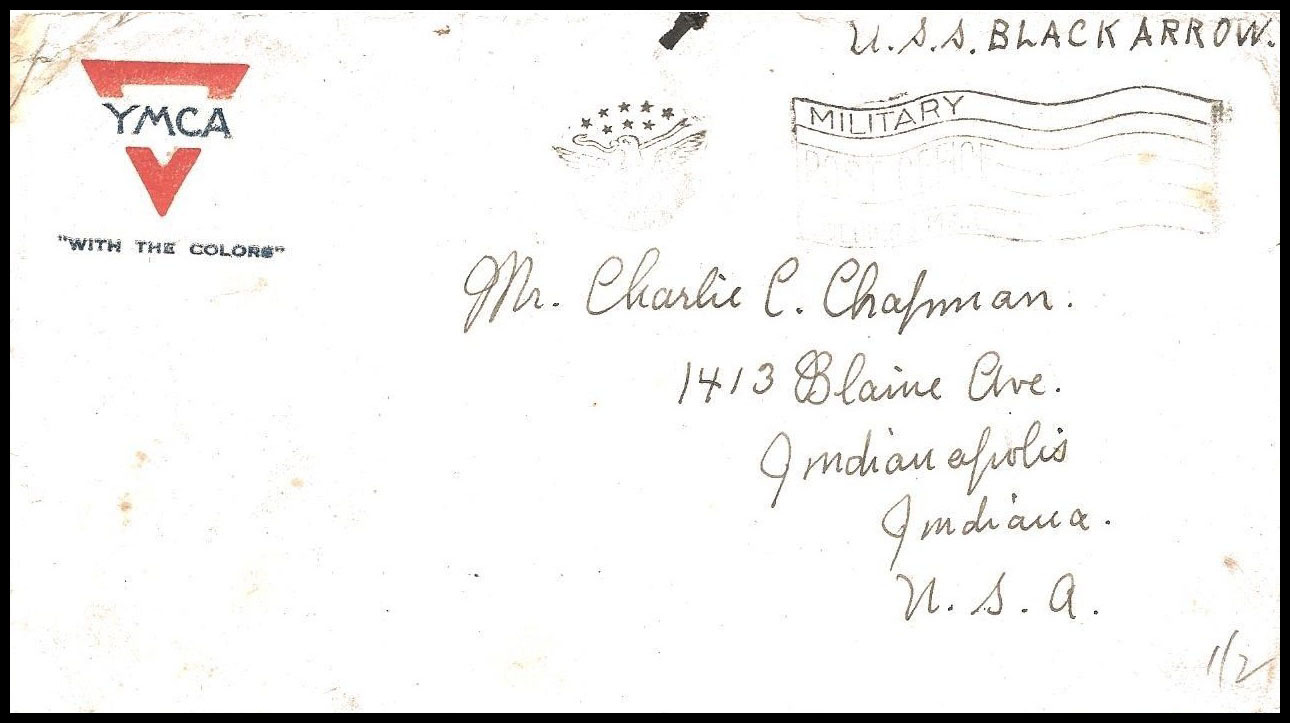 U.S.S. BLACK ARROW.
YMCA
MILITARY
POST OFFICE
"WITH THE COLORS"
Mr. Charlie C. Chapman.
1413 Blaine Ave.
Indianapolis
Indiana.
U.S.A.
1/2